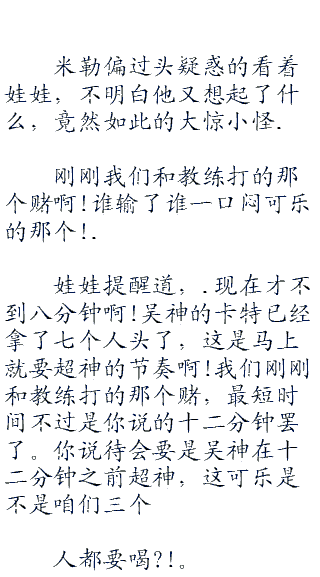 米勒偏过头疑惑的看着
娃娃，不明白他又想起了什
么，竟然如此的大惊小怪.
刚刚我们和教练打的那
个赌啊!谁输了谁一口闷可乐
的那个!.
娃娃提醒道，.现在才不
到八分钟啊!吴神的卡特已经
拿了七个人头了，这是马上
就要超神的节奏啊!我们刚刚
和教练打的那个赌，最短时
间不过是你说的十二分钟罢
了。你说待会要是吴神在十
二分钟之前超神，这可乐是
不是咱们三个
人都要喝?!。